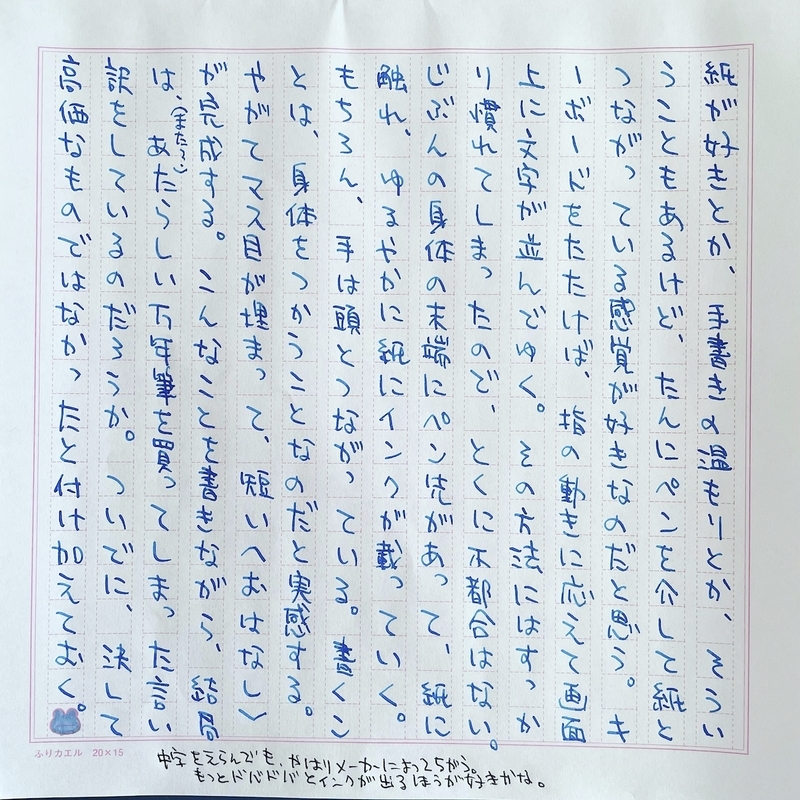 紙が好きとか、手書きの温もりとか、そうい
うこともあるけど、たんにペンを介して紙と
つながっている感覚が好きなのだと思う。キ
ーボードをたたけば、指の動きに応えて画面
上に文字が並んでゆく。その方法にはすっか
り慣れてしまったので、とくに不都合はない。
じぶんの身体の末端にペン先があって、紙に
触れ、ゆるやかに紙にインクが載っていく。
もちろん、手は頭とつながっている。書くこ
とは、身体をつかうことなのだと実感する。
やがてマス目が埋まって、短い〈おはなし〉
が完成する。こんなことを書きながら、結局
は、(またろ)あたらしい万年筆を買ってしまった言い
訳をしているのだろうか。ついでに、決して
高価なものではなかったと付け加えておく。
ふりカエル 20×15
中字をえらんでも、やはりメーカーによってちがう。
もっとドバドバとインクが出るほうが好きかな。